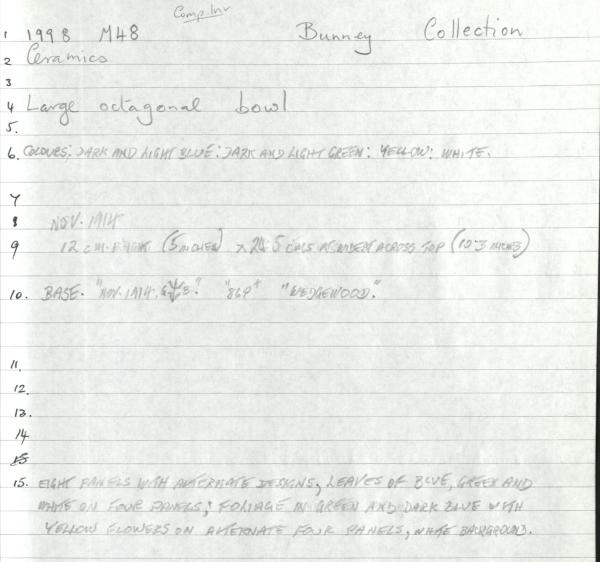 Comp. Inv
1 1998 M48 Bunney Collection
2 Ceramics
3
4 Large octagonal bowl
5.
6. COLOURS: DARK AND LIGHT BLUE: DARK AND LIGHT GREEN: YELLOW: WHITE.
7
8 NOV. 1914
9 12 cm. HIGH (5 INCHES) x 26.5 CMS AT WIDEST ACROSS TOP (10.3 INCHES)
10. BASE. "NOV. 1914. "869+ "WEDGEWOOD."
11.
12.
13.
14
15
15. EIGHT PANELS WITH ALTERNATE DESIGNS, LEAVES OF BLUE, GREEN AND
WHITE ON FOUR PANELS; FOLIAGE IN GREEN AND DARK BLUE WITH
YELLOW FLOWERS ON ALTERNATE FOUR PANELS, WHITE BACKGROUND.